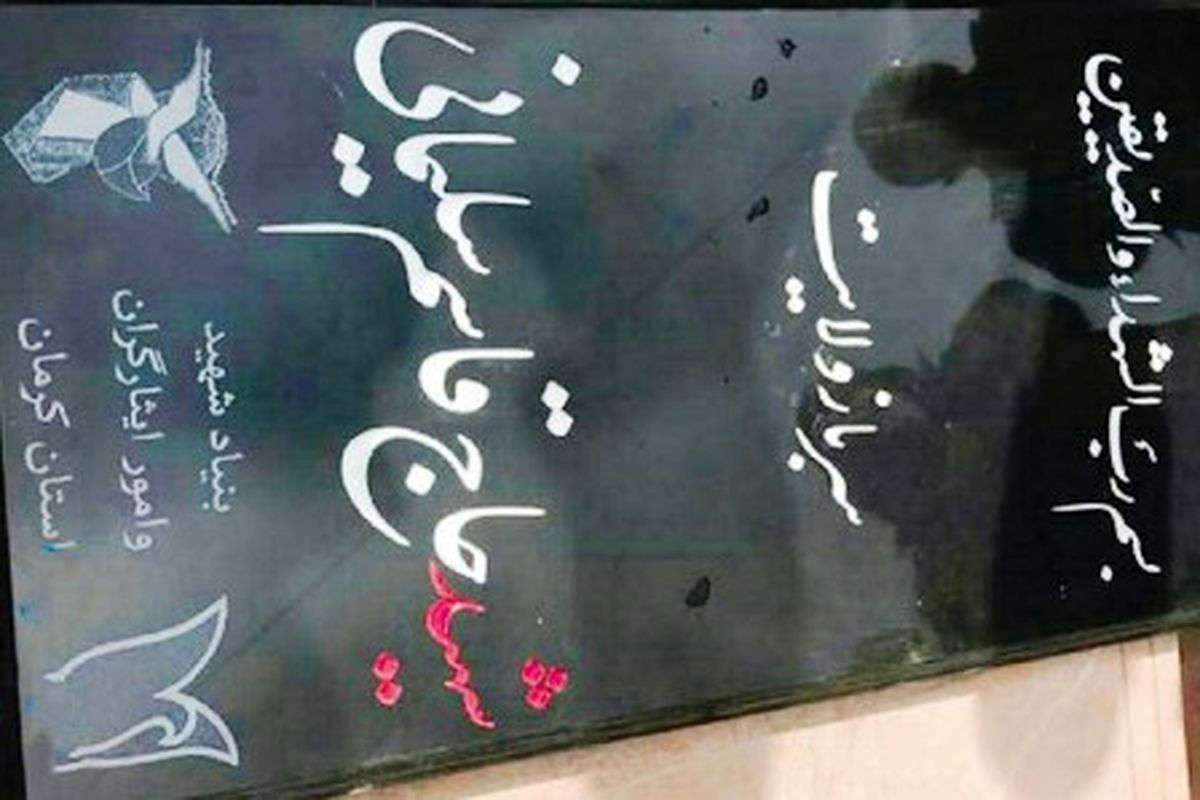 بسم رب الشهداء والصدیقین
سرباز ولایت
شهید حاج قاسم سلیمانی
بنیاد شهید
وامور ایثارگران
استان کرمان